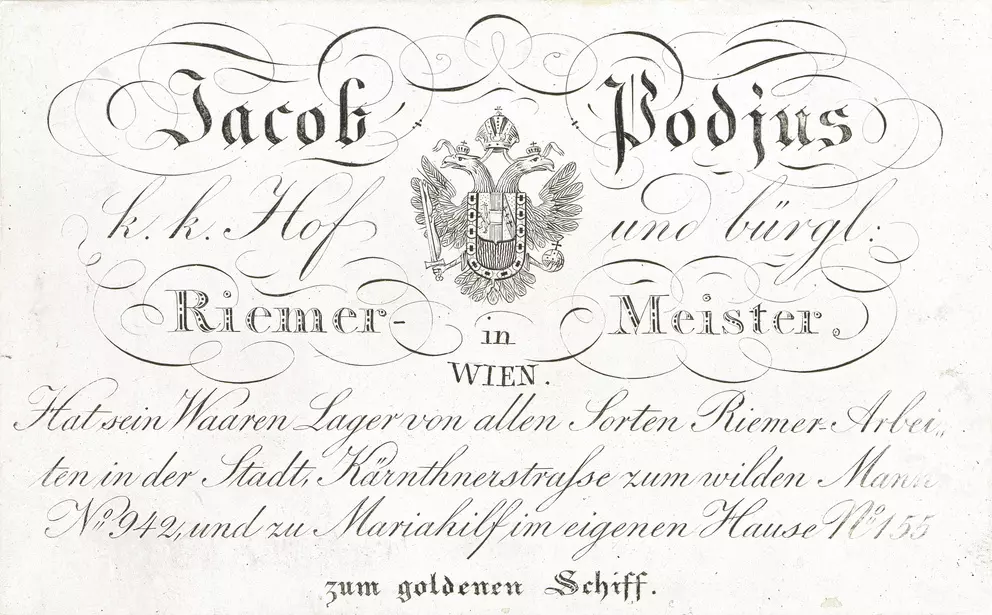 Jacob Podjus
k. k. Hof und bürgl:
Riemer- in Meister.
WIEN.
Hat sein Waaren Lager von allen Sorten Riemer-Arbei„
ten in der Stadt, Kärnthnerstraſse zum wilden Mann
No. 942, und zu Mariahilf im eigenen Hause No 155
zum goldenen Schiff.